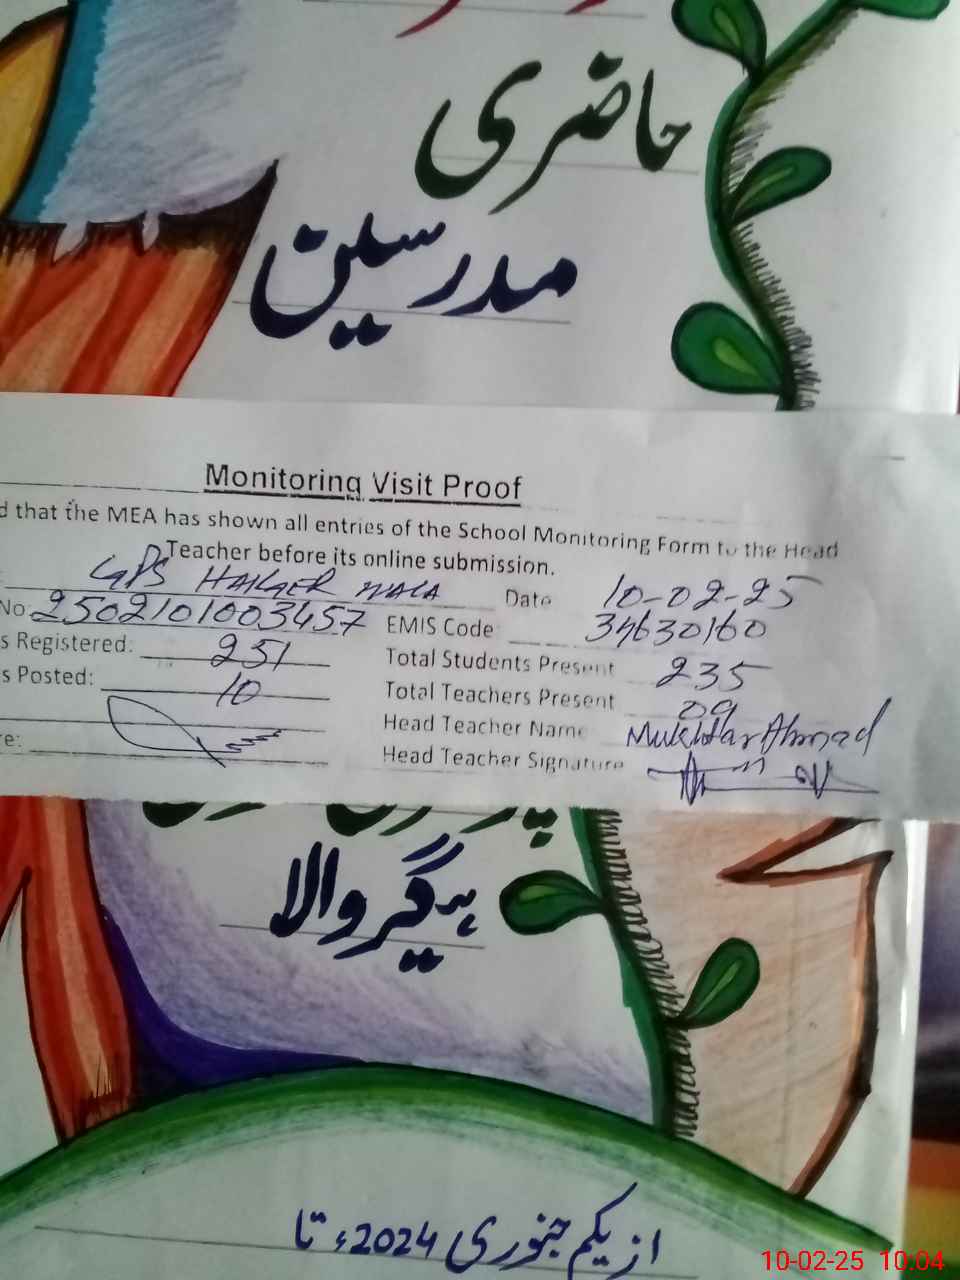 حاضری
مدرسین
Monitoring Visit Proof
d that the MEA has shown all entries of the School Monitoring Form to the Head
Teacher before its online submission.
GPS HAIGER WALA Date 10-02-25
No: 2502101003457 EMIS Code 34630160
s Registered: 251 Total Students Present 235
s Posted: 10 Total Teachers Present 09
Head Teacher Name Mukhtar Ahmad
re: Head Teacher Signature
ہیگر والا
از یکم جنوری 2024ء تا
10-02-25 10:04